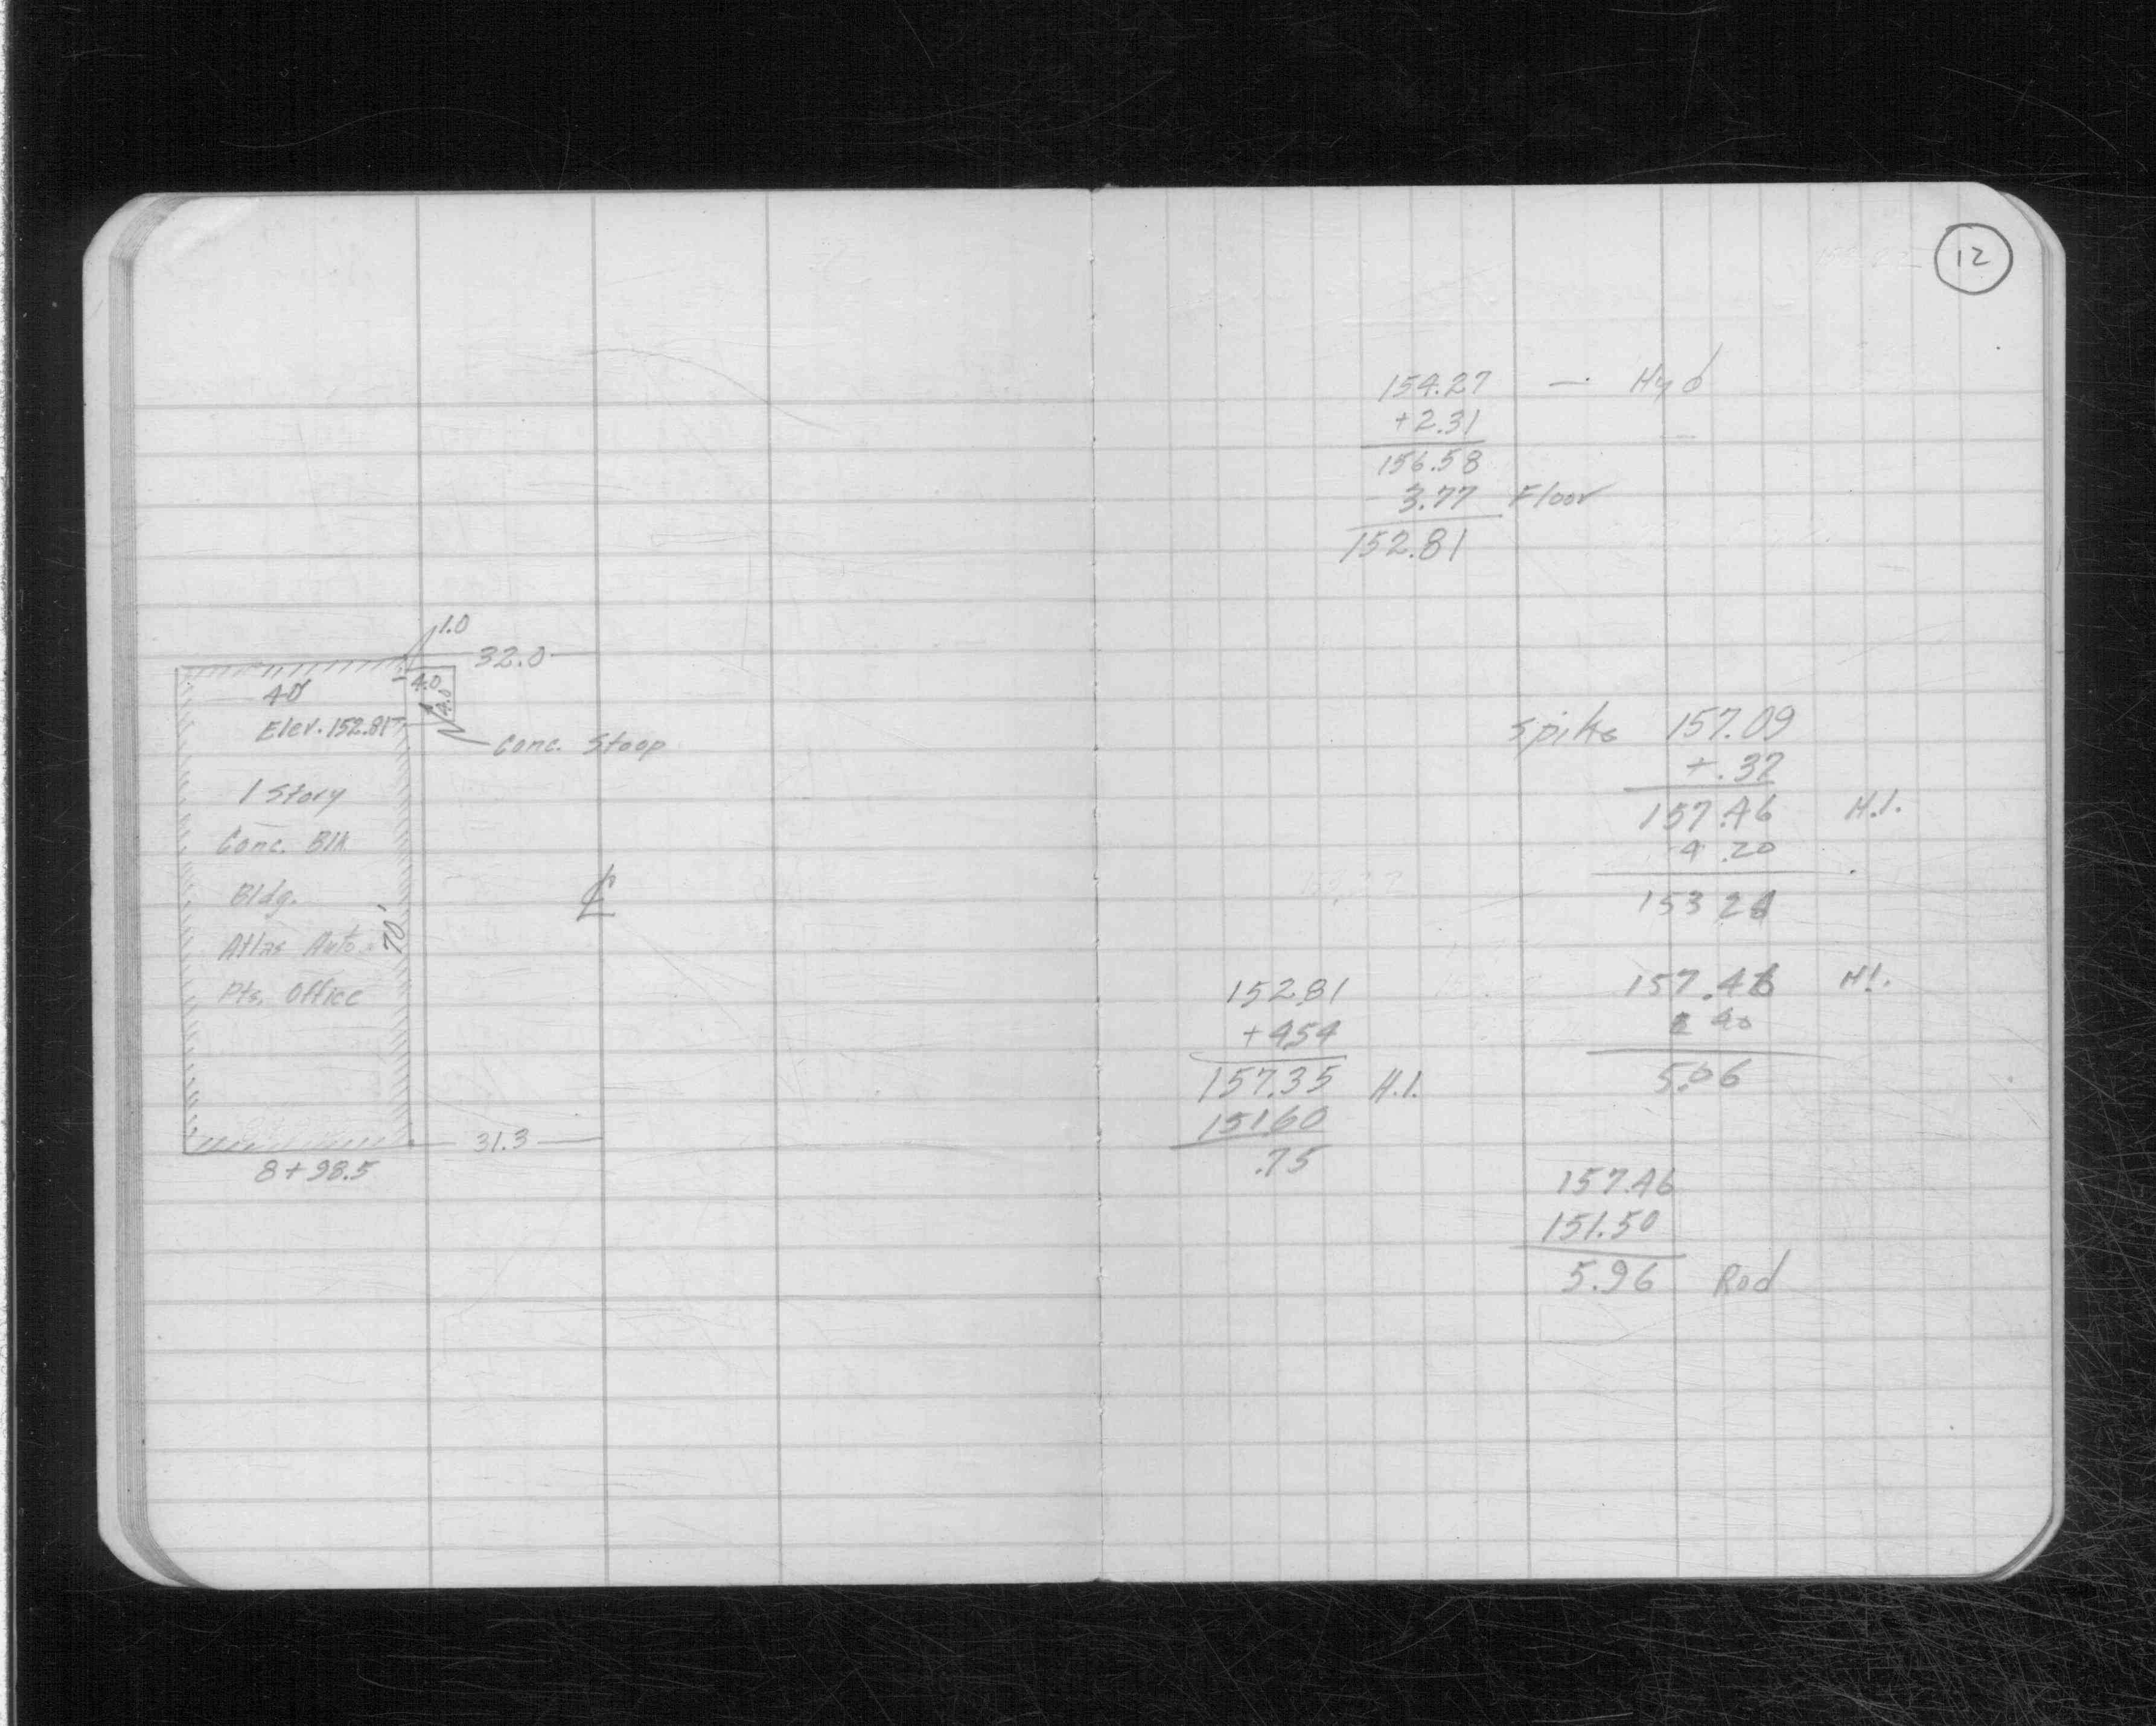 1.0
32.0
40'
4.0
4.0
Elev. 152.81
Conc. Stoop
1 Story
Conc. Blk
Bldg.
70'
Atlas Auto
Pts. Office
31.3
8+98.5
12
154.27 — Hyd
+2.31
156.58
- 3.77 Floor
152.81
Spike 157.09
+.37
157.46 H.I.
4.20
153 26
152.81
+4.54
157.35 H.I.
151.60
.75
157.46 H.I.
2 40
5.06
157.46
151.50
5.96 Rod